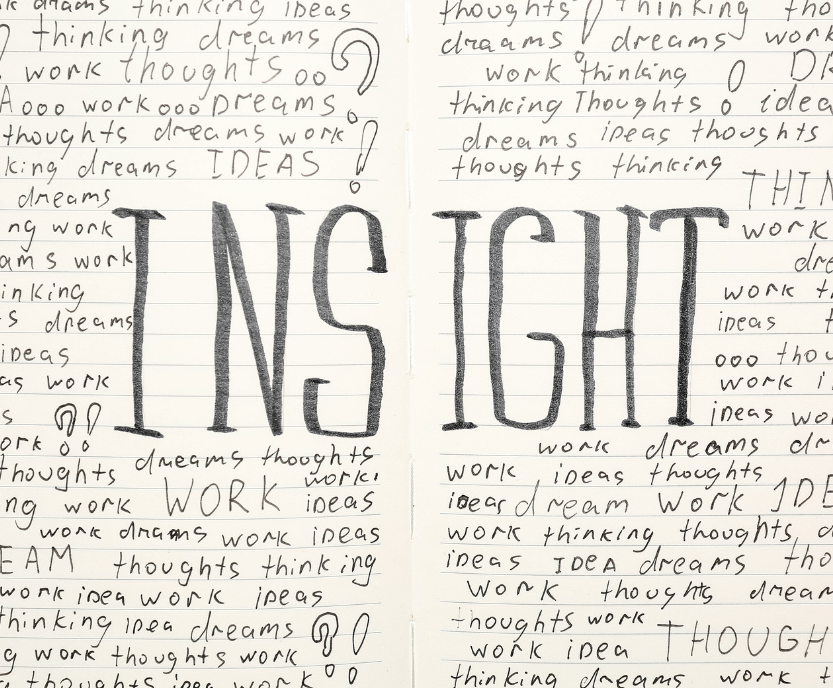 dreams thinking ideas
thinking dreams ?
work thoughts oo
A ooo work ooo Dreams
thoughts dreams work !
king dreams IDEAS
dreams
ng work
ams work
inking
s dreams
ideas
as work
s ?!
ork
INS
dreams thoughts
thoughts work.
ng work WORK ideas
work drams work ideas
EAM thoughts thinking
work idea work ideas
thinking idea dreams ?!
g work thoughts work
thoughts idea work
thoughts ! Thinking tho
draams dreams work
work thinking DR
thinking Thoughts o idea
dreams ideas thoughts
thoughts thinking
THIN
work
dre
work th
ideas t
ooo thou
work i
ideas wo
IGHT
work dreams dr
work ideas thoughts
idear dream Work IDE
work thinking thoughts, d
ideas IDEA dreams tho
Work thoughts dream
thoughts work
work idea THOUGH
thinking dreams work t